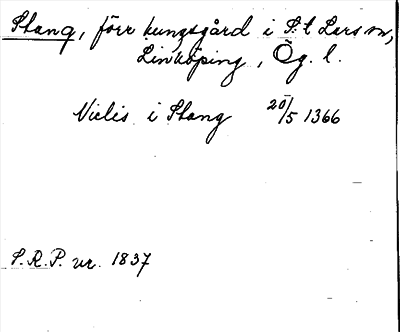 Stang, förr kungsgård i S:t Lars sn,
Linköping, Ög. l.
Niclis i Stang 20/5 1366
S.R.P. nr. 1837